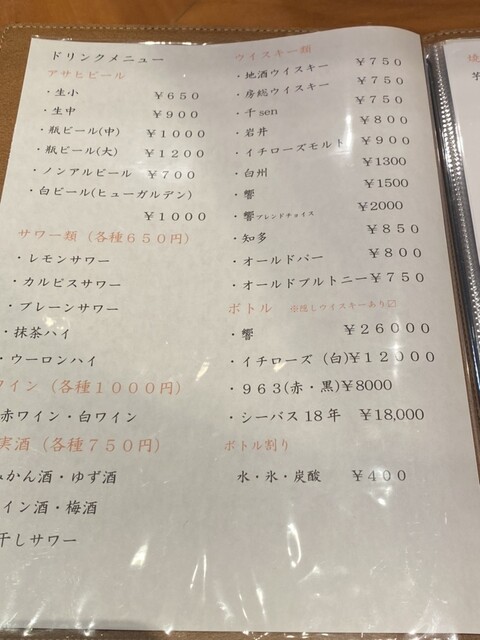 ドリンクメニュー
アサヒビール
・生小 ￥６５０
・生中 ￥９００
・瓶ビール(中) ￥１０００
・瓶ビール(大) ￥１２００
・ノンアルビール ￥７００
・白ビール(ヒューガルデン)
￥１０００
サワー類（各種６５０円）
・レモンサワー
・カルピスサワー
・プレーンサワー
・抹茶ハイ
・ウーロンハイ
ワイン（各種１０００円）
赤ワイン・白ワイン
実酒（各種７５０円）
みかん酒・ゆず酒
イン酒・梅酒
干しサワー
ウイスキー類
・地酒ウイスキー ￥７５０
・房総ウイスキー ￥７５０
・千sen ￥７５０
・岩井 ￥８００
・イチローズモルト ￥９００
・白州 ￥1300
・響 ￥1500
・響ブレンドチョイス ￥2000
・知多 ￥８５０
・オールドパー ￥８００
・オールドプルトニー￥７５０
ボトル ※隠しウイスキーあり〼
・響 ￥２６０００
・イチローズ（白)￥１２０００
・９６３(赤・黒)￥8000
・シーバス 18 年 ￥18,000
ボトル割り
水・氷・炭酸 ￥４００